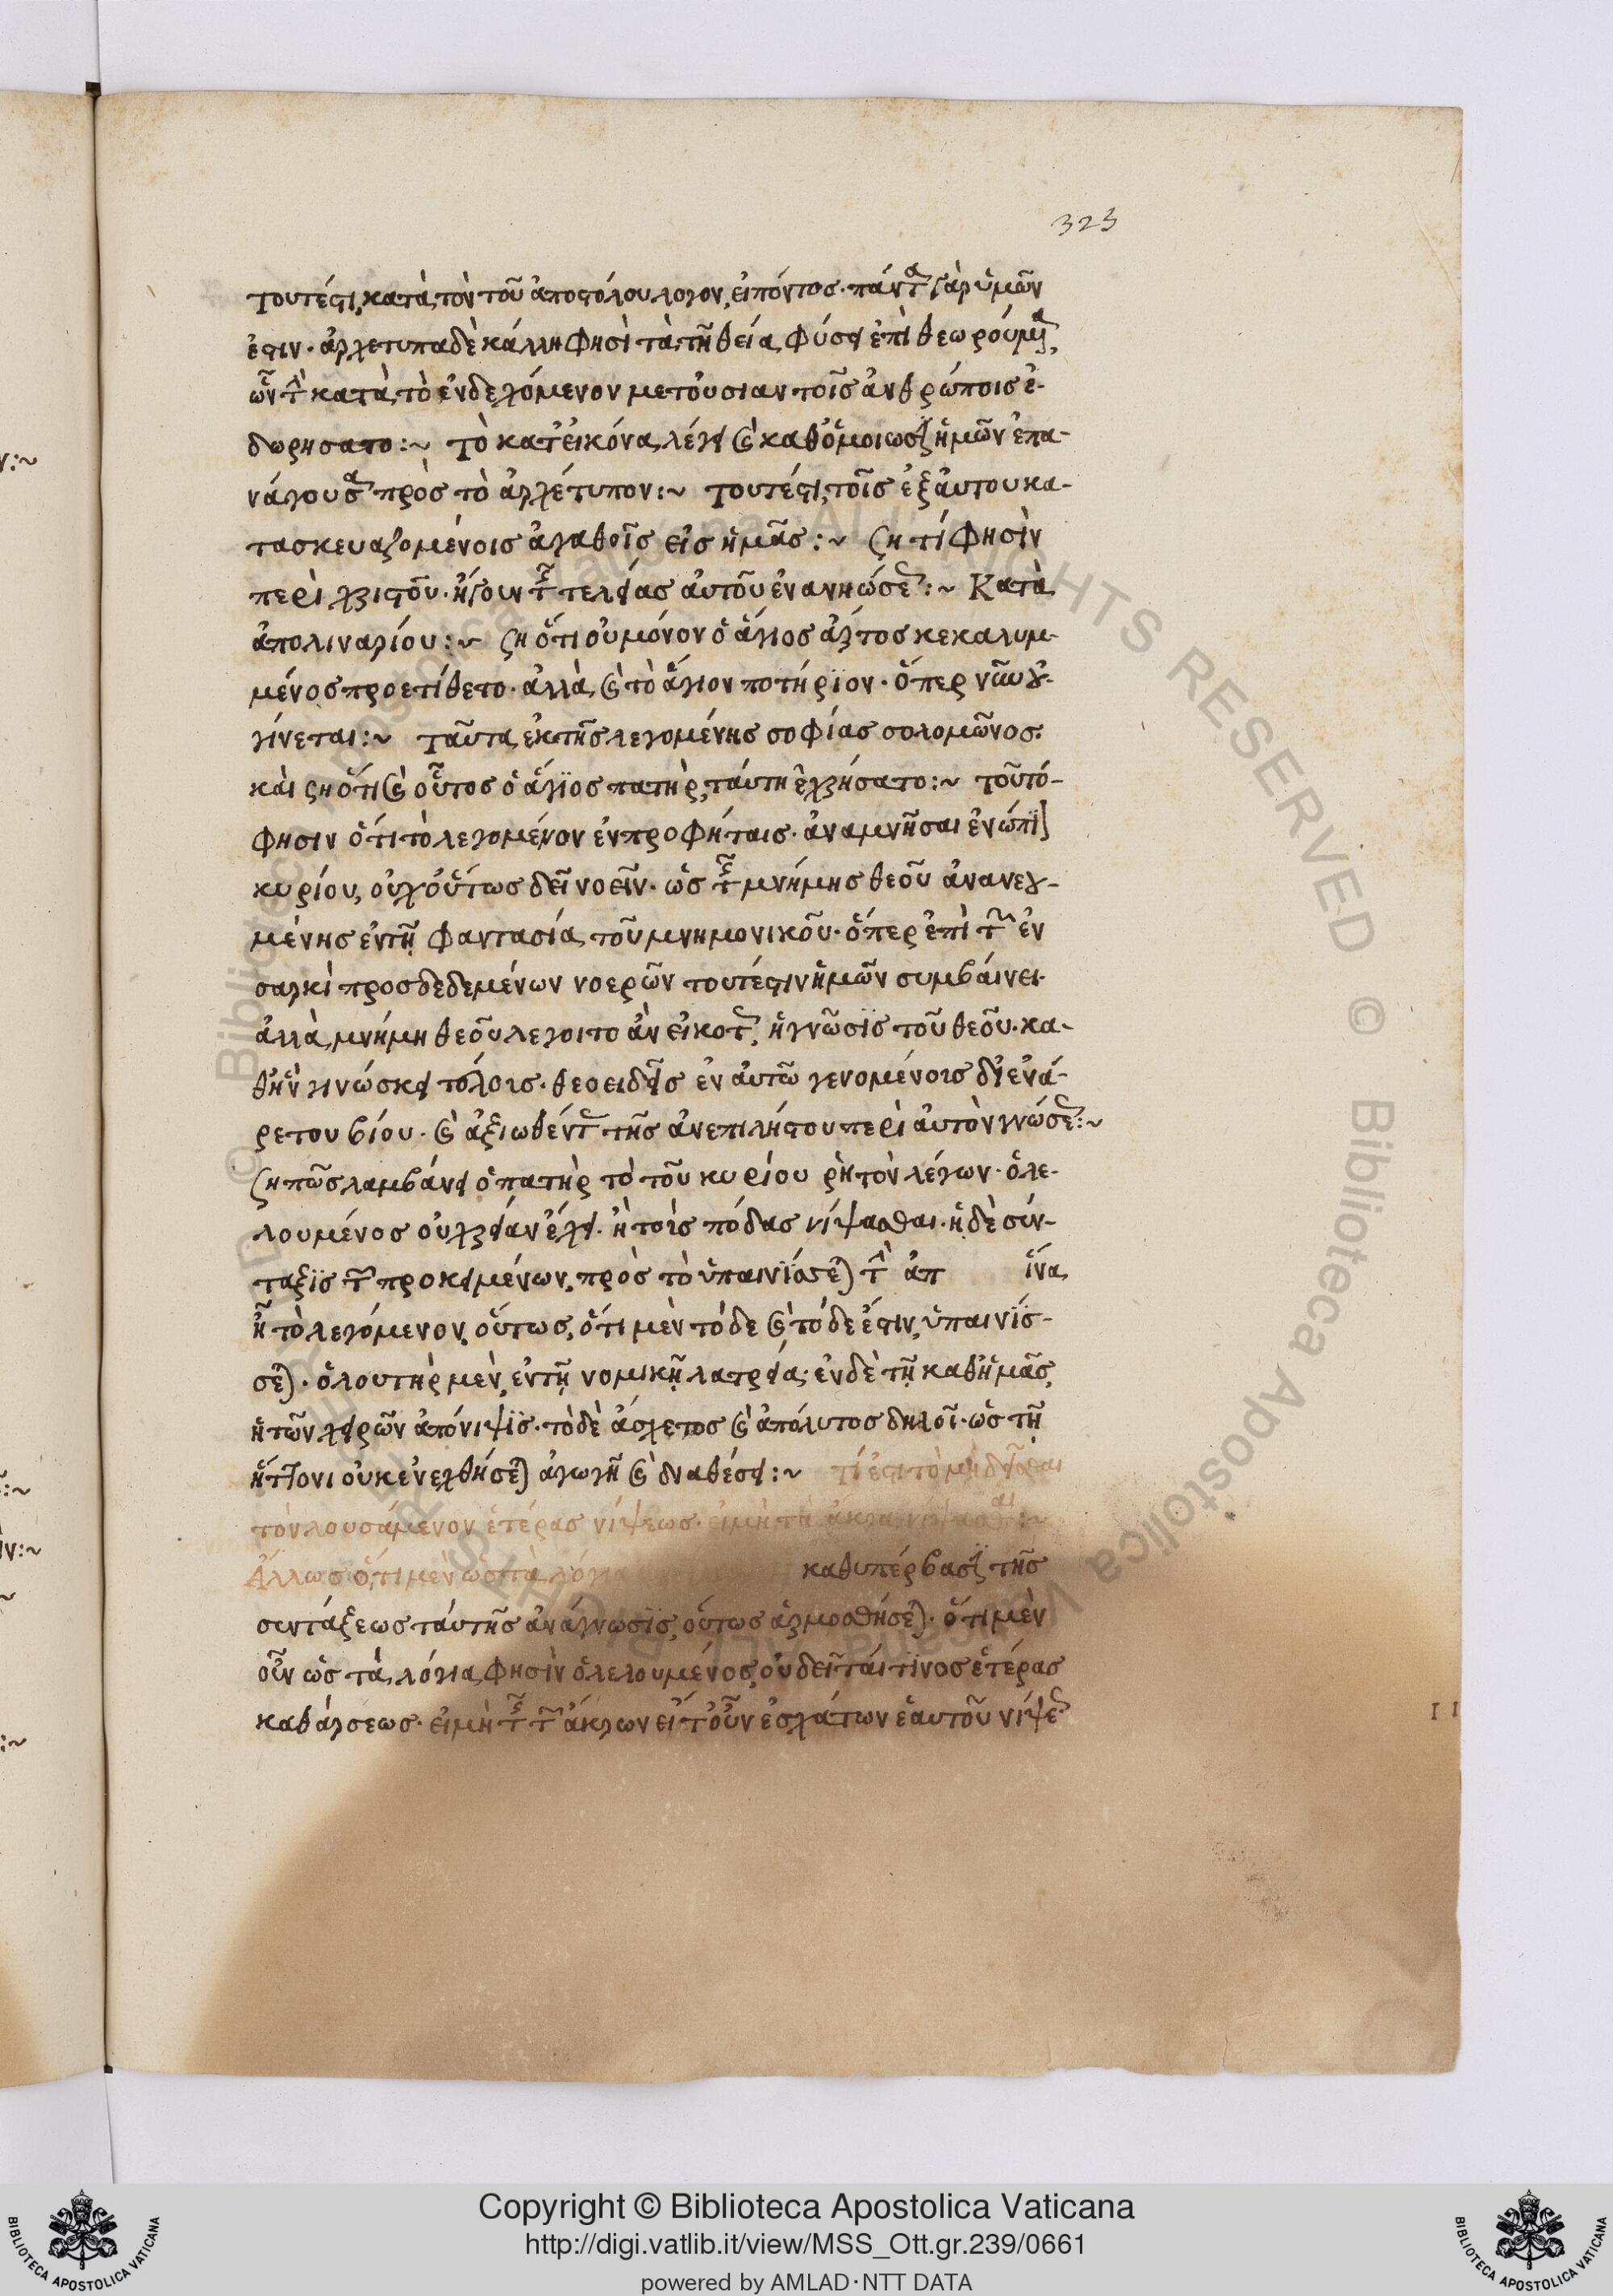 323
τουτέστι, κατὰ τὸν τοῦ ἀποστόλου λόγον, εἰπόντος· πάντα γὰρ ὑμῶν
ἐστιν· ἀρχέτυπα δὲ κάλλη φησὶ τὰ τῆ θεία φύσει ἐπιθεωρούμενα,
ὧν τὴν κατὰ τὸ ἐνδεχόμενον μετουσίαν τοῖς ἀνθρώποις ἐ-
δωρήσατο :~ Τὸ κατ' εἰκόνα λέγει καὶ καθ' ὁμοίωσιν ἡμῶν ἐπα-
νάγουσα πρὸς τὸ ἀρχέτυπον :~ Τουτέστι, τοῖς ἐξ αὐτοῦ κα-
τασκευαζομένοις ἀγαθοῖς εἰς ἡμᾶς :~ ζη τί φησὶν
περὶ χριστοῦ· ἤγουν τῆς τελείας αὐτοῦ ἐνανθρωπήσεως :~ Κατὰ
ἀπολιναρίου :~ ζη ὅτι οὐ μόνον ὁ ἅγιος ἄρτος κεκαλυμ-
μένος προετίθετο· ἀλλὰ καὶ τὸ ἅγιον ποτήριον· ὅπερ νῦν οὐ
γίνεται :~ ταῦτα ἐκ τῆς λεγομένης σοφίας σολομῶνος·
καὶ ση ὅτι καὶ οὗτος ὁ ἅγιος πατὴρ, ταύτη ἐχρήσατο :~ τοῦτό
φησιν ὅτι τὸ λεγόμενον ἐν προφήταις· ἀναμνῆσαι ἐνώπιον
κυρίου, οὐχ οὕτως δεῖ νοεῖν· ὡς τῆς μνήμης θεοῦ ἀνανεγ-
μένης ἐν τῆ φαντασία τοῦ μνημονικοῦ· ὅπερ ἐπὶ τῶν ἐν
σαρκὶ προσδεδεμένων νοερῶν τουτέστιν ἡμῶν συμβαίνει·
ἀλλὰ μνήμη θεοῦ λέγοιτο ἂν εἰκότως, ἡ γνῶσις τοῦ θεοῦ· κα-
θ' ἣν γινώσκει τοὺς θεοειδεῖς ἐν αὐτῶ γενομένοις δι' ἐνα-
ρέτου βίου· καὶ ἀξιωθέντας τῆς ἀνεπιλήστου περὶ αὐτὸν γνώσεως :~
ζη πῶς λαμβάνει ὁ πατὴρ τὸ τοῦ κυρίου ρητὸν λέγων· ὁ λε-
λουμένος οὐ χρείαν ἔχει· ἢ τοὺς πόδας νίψασθαι· ἡ δὲ σύν-
ταξις τῶν προκειμένων, πρὸς τὸ ὑπαινίσσεται τὴν ἀπ ἵνα
ἦ τὸ λεγόμενον οὕτως, ὅτι μὲν τόδε καὶ τόδε ἐστιν, ὑπαινίσ-
σεται· ὁ λουτὴρ μὲν, ἐν τῆ νομικῆ λατρεία· ἐν δὲ τῆ καθ' ἡμᾶς,
ἡ τῶν χειρῶν ἀπόνιψις· τὸ δὲ ἄσχετος καὶ ἀπόλυτος δηλοῖ· ὡς τῆ
ἥττονι οὐκ ἐνεχθήσεται ἀγωγῆ καὶ διαθέσει :~ τί ἐστι τὸ μὴ δεῖσθαι
τὸν λουσάμενον ἑτέρας νίψεως· εἰ μὴ τὰ ἄκρα νίψασθαι :~
Ἄλλως ὅτι μὲν ὡς τὰ λόγια καθ' υπέρβασιν τῆς
συντάξεως ταύτης ἀνάγνωσις, οὕτως ἁρμοσθήσεται· ὅτι μὲν
οὖν ὡς τὰ λόγια φησὶν ὁ λελουμένος, οὐ δεῖται τινος ἑτέρας
καθάρσεως· εἰ μὴ τῆς τῶν ἄκρων εἴτ' οὖν ἐσχάτων ἑαυτοῦ νίψεως
11
Copyright © Biblioteca Apostolica Vaticana
http://digi.vatlib.it/view/MSS_Ott.gr.239/0661
powered by AMLAD·NTT DATA
BIBLIOTECA APOSTOLICA VATICANA
BIBLIOTECA APOSTOLICA VATICANA